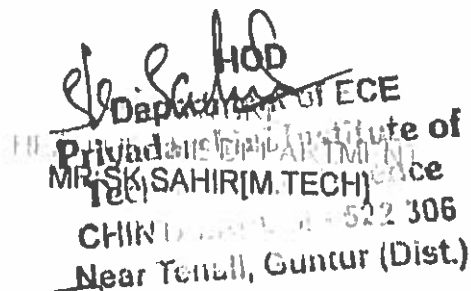 HOD
Department of ECE
Priyadarshini Institute of
DEPARTMENT
MR.SK.SAHIR[M.TECH]
CHIN 522 306
Near Tenali, Guntur (Dist.)